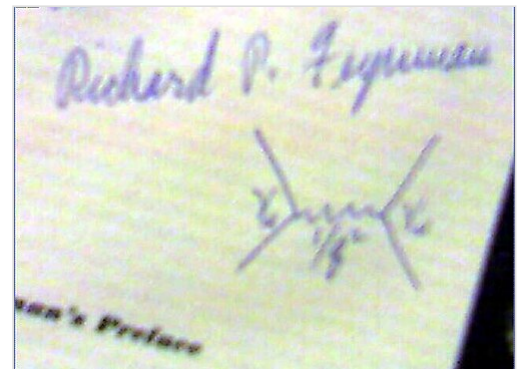 Richard P. Feynman
γμ
γμ
1/q²
man's Preface